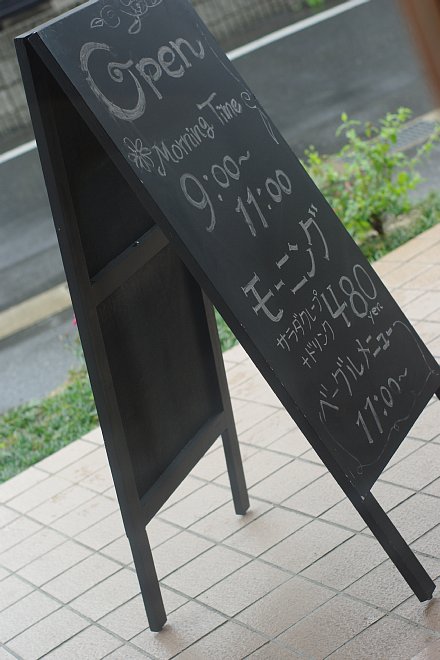 Open
Morning Time
9:00~
11:00
モーニング
サラダクレープ
+ドリンク 480 yen.
ベーグルメニュー
11:00~